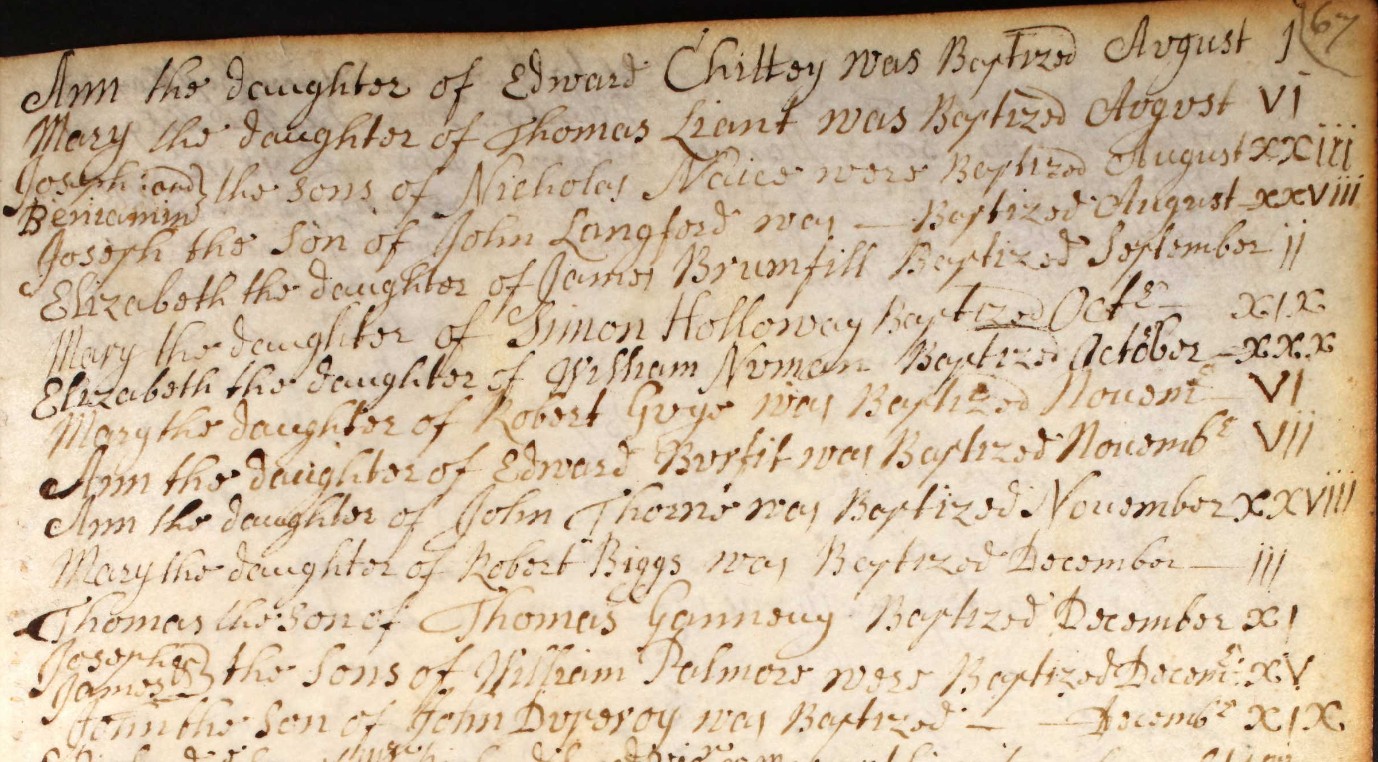 67
Ann the daughter of Edward Chittey was Baptized Avgust 1
Mary the daughter of Thomas Liant was Baptized Avgvst VI
Joseph and Beniamin the sons of Nicholas Naice were Baptized August XXiii
Joseph the son of John Langford was — Baptized August xxviii
Elizabeth the daughter of James Brumfill Baptized September ii
Mary the daughter of Simon Holloway Baptized Octr XIX
Elizabeth the daughter of William Nvman Baptized October — xxx
Mary the daughter of Robert Gvye was Baptized Nouemr VI
Ann the daughter of Edward Bvrfit was Baptized Nouembr VII
Ann the daughter of John Thorne was Baptized Nouember XXVIII
Mary the daughter of Robert Biggs was Baptized December — iii
Thomas the son of Thomas Ganneuy Baptized December XI
Joseph and James the sons of William Palmore were Baptized Decemr: XV
John the son of John Dvperoy was Baptized — — Decembr XIX